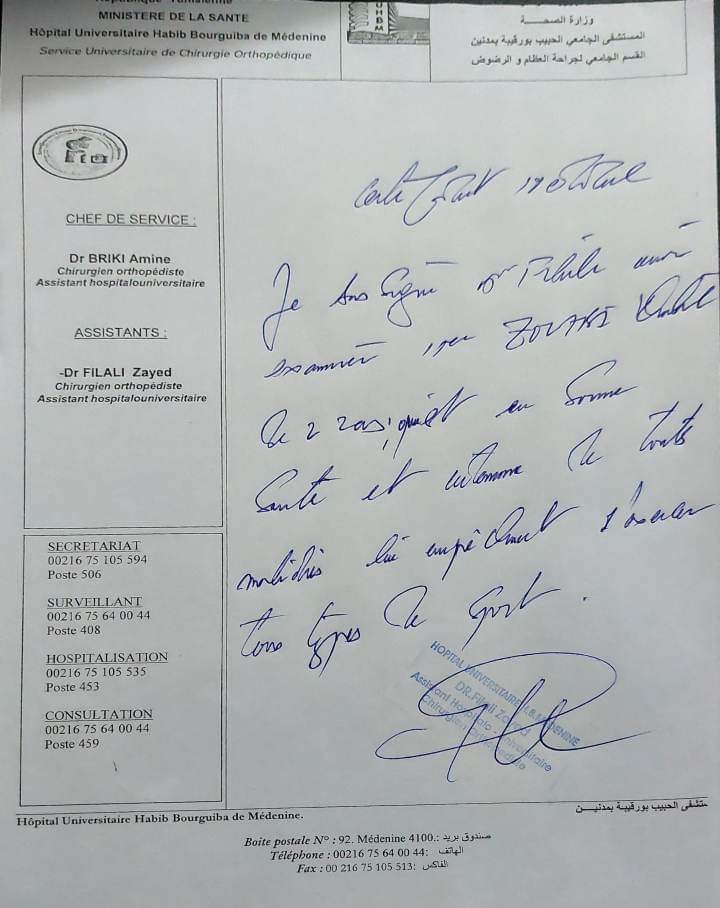 République Tunisienne
MINISTERE DE LA SANTE
Hôpital Universitaire Habib Bourguiba de Médenine
Service Universitaire de Chirurgie Orthopédique
UHBM
وزارة الصحـــــة
المستشفى الجامعي الحبيب بورقيبة بمدنين
القسم الجامعي لجراحة العظام و الرضوض
CHEF DE SERVICE :
Dr BRIKI Amine
Chirurgien orthopédiste
Assistant hospitalouniversitaire
ASSISTANTS :
-Dr FILALI Zayed
Chirurgien orthopédiste
Assistant hospitalouniversitaire
SECRETARIAT
00216 75 105 594
Poste 506
SURVEILLANT
00216 75 64 00 44
Poste 408
HOSPITALISATION
00216 75 105 535
Poste 453
CONSULTATION
00216 75 64 00 44
Poste 459
Je Sous Signé Dr Filali
examiner ZOUARI
de 22 ans, qui est en bonne
Santé et indemne de toute
empêchant d'exercer
tous types de sport.
HOPITAL UNIVERSITAIRE H.B.MEDENINE
DR.Filali Zayed
Assistant Hospitalo - Universitaire
Chirurgien Orthopédiste
Hôpital Universitaire Habib Bourguiba de Médenine.
مستشفى الحبيب بورقيبة بمدنيـــن
Boite postale N° : 92. Médenine 4100.: صندوق بريد
Téléphone : 00216 75 64 00 44: الهاتف
Fax : 00 216 75 105 513: الفاكس